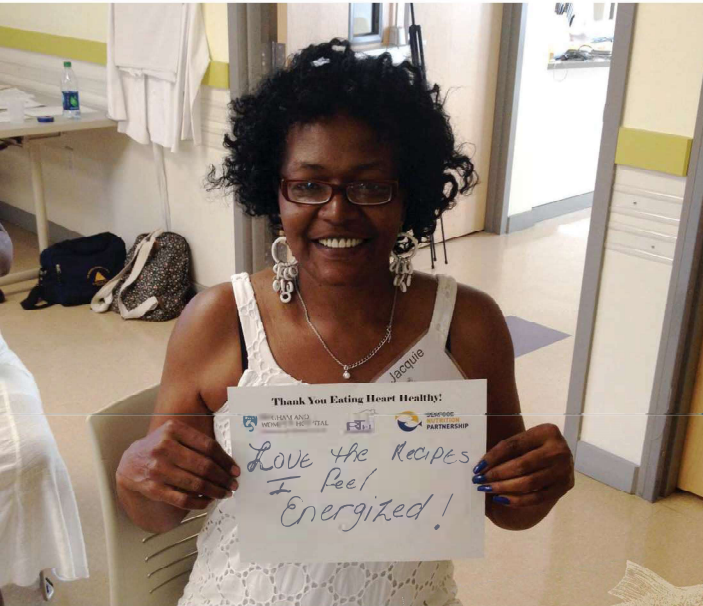 Jacquie
Thank You Eating Heart Healthy!
WOMEN'S HOSPITAL
SEAFOOD
NUTRITION
PARTNERSHIP
LOVE the RecipeS
I feel
Energized!